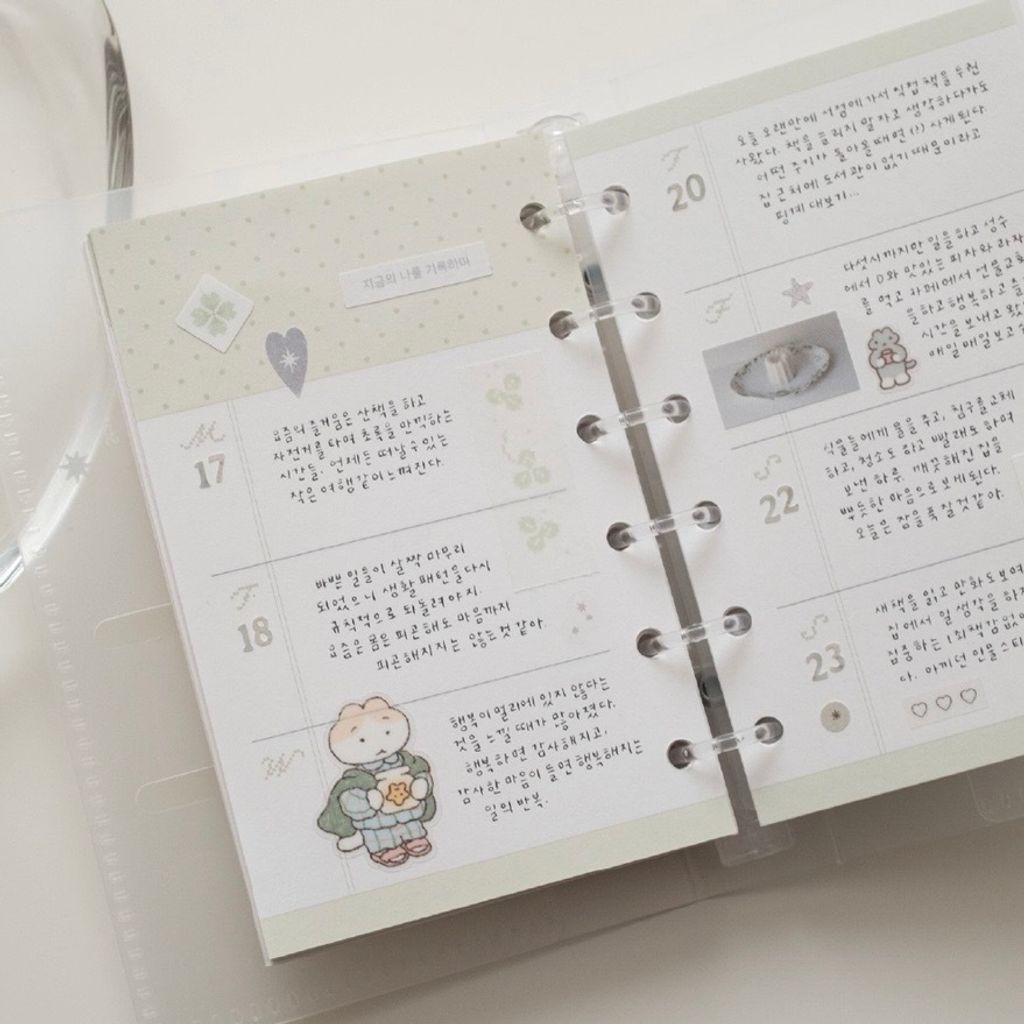 지금의 나를 기록하며
M
17
요즘의 즐거움은 산책을 하고
자전거를 타며 초록을 만끽하는
시간들. 언제든 떠날 수 있는
작은 여행같이 느껴진다.
T
18
바쁜 일들이 살짝 마무리
되었으니 생활 패턴을 다시
규칙적으로 되돌려야지.
요즘은 몸은 피곤해도 마음까지
피곤해지지는 않는 것 같아.
W
행복이 멀리에 있지 않다는
것을 느낄 때가 많아졌다.
행복하면 감사해지고,
감사한 마음이 들면 행복해지는
일의 반복.
T
20
오늘 오랜만에 서점에 가서 직접 책을 두권
사왔다. 책을 늘리지 말자고 생각하다가도
어떤 주기가 돌아올 때면 (!) 사게된다.
집 근처에 도서관이 없기 때문이라고
핑계 대보기...
F
다섯시까지만 일을 하고 성수
에서 D와 맛있는 피자와
를 먹고 카페에서 선물교환
을 하고 행복하고
시간을 보내고 왔
매일매일 보고
S
22
식물들에게 물을 주고, 침구를 교체
하고, 청소도 하고 빨래도 하며
보낸 하루. 깨끗해진 집을
뿌듯한 마음으로 보게된다.
오늘은 잠을 푹 잘 것 같아.
S
23
새 책을 읽고 만화도 보며
집에서 쉴 생각을 하
집중하는 1
다. 아끼던 인물스티